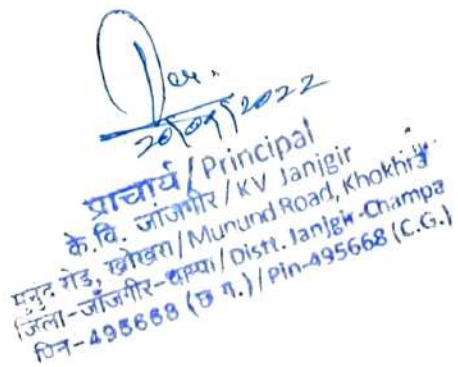 20/09/2022
प्राचार्य/Principal
के.वि. जांजगीर/KV Janjgir
मुनुद रोड, खोखरा/Munund Road, Khokhra
जिला-जाँजगीर-चाम्पा/Distt. Janjgir-Champa
पिन-495668 (छ.ग.)/Pin-495668 (C.G.)